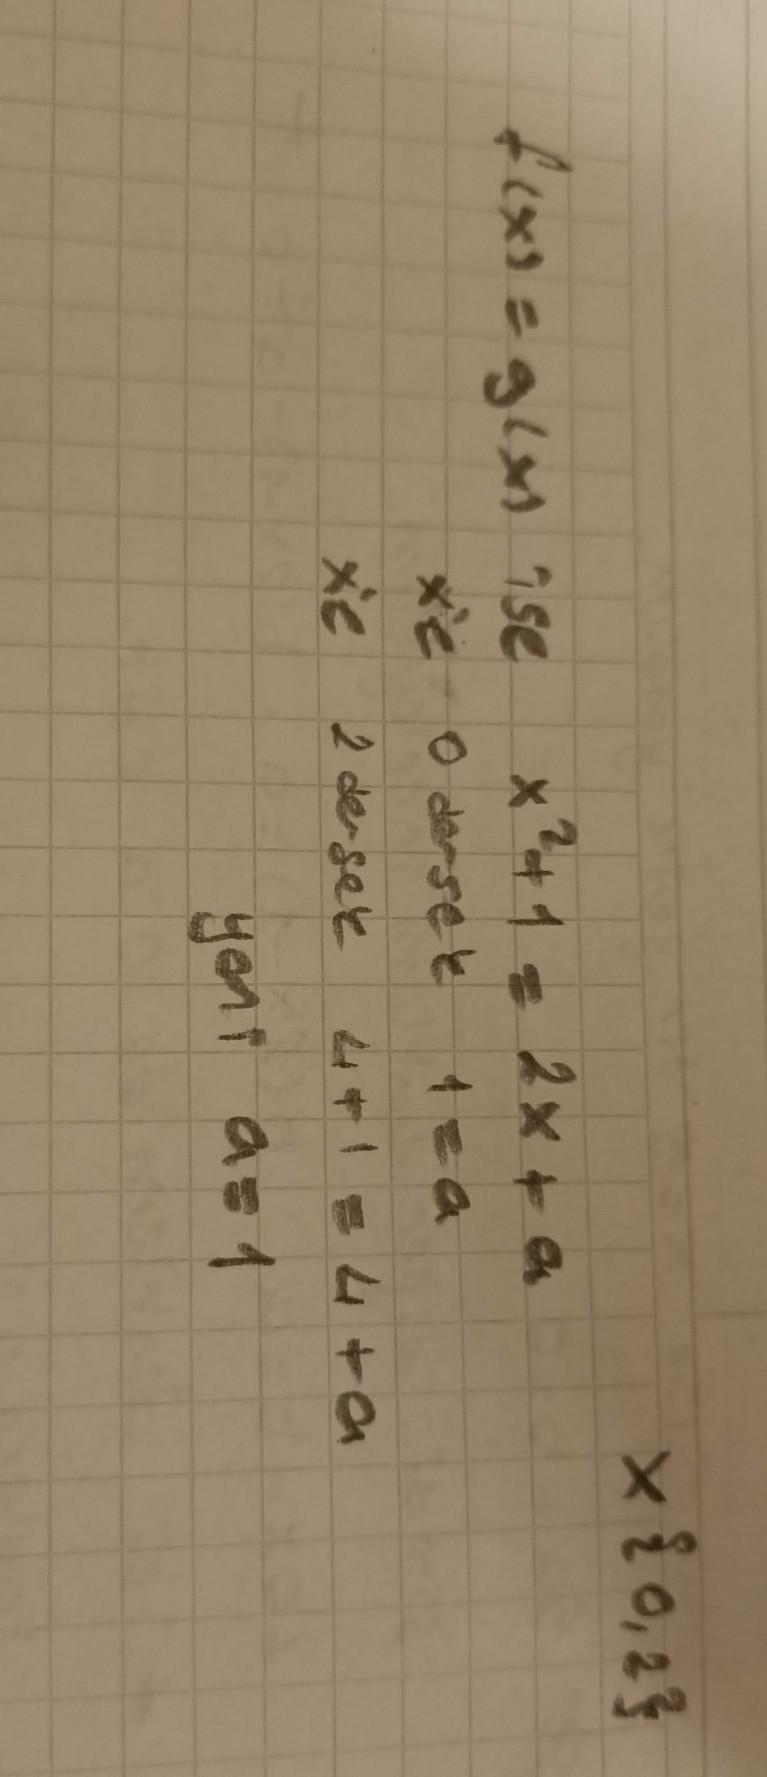 x{0,2}
f(x) = g(x) ise x²+1 = 2x + a
x'e 0 dersek 1 = a
x'e 2 dersek 4+1 = 4+a
yani a=1